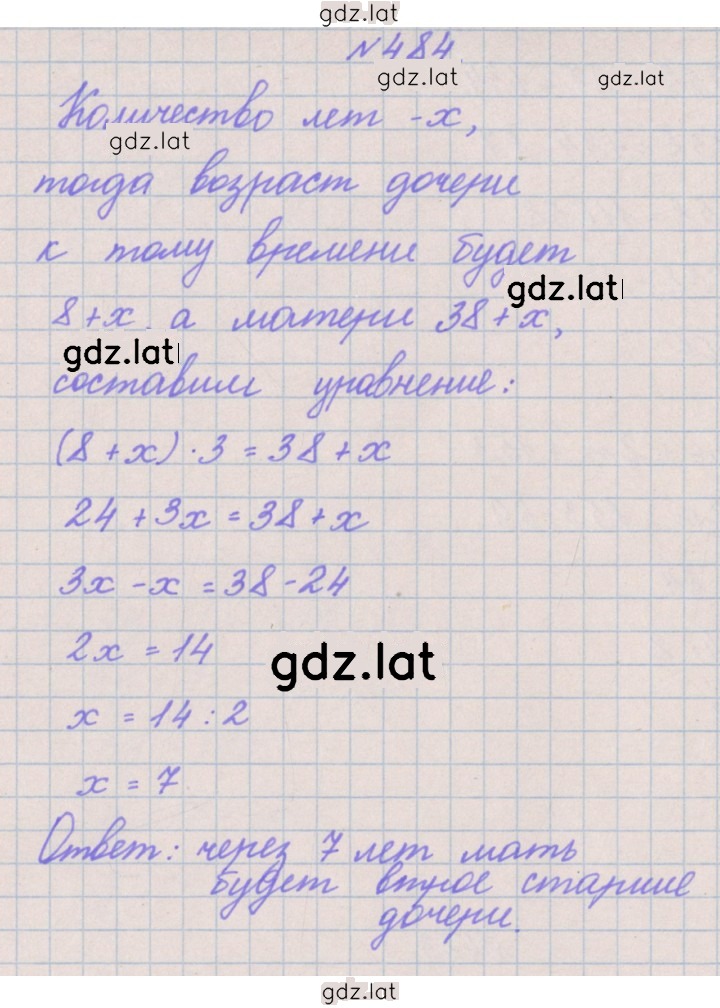 gdz.lat
№484
gdz.lat gdz.lat
Количество лет - x,
gdz.lat
тогда возраст дочери
к тому времени будет
gdz.lat
8+x, а матери 38+x,
gdz.lat
составим уравнение:
(8+x)·3=38+x
24+3x=38+x
3x-x=38-24
2x=14
gdz.lat
x=14:2
x=7
Ответ: через 7 лет мать
будет втрое старше
дочери.
gdz.lat